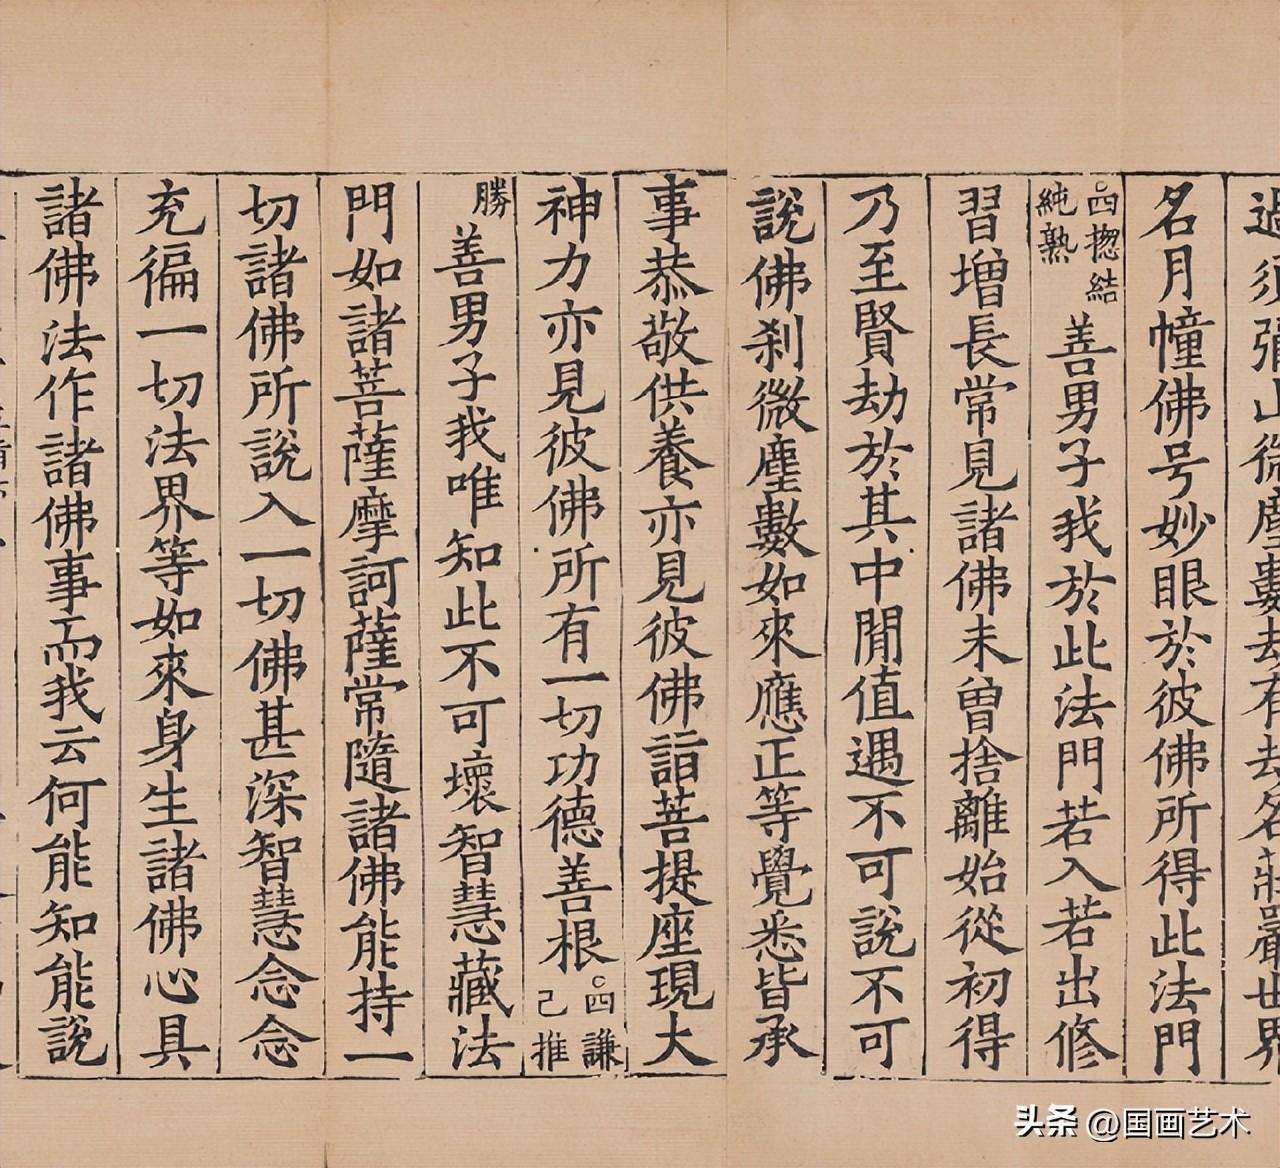 過須彌山微塵數劫有劫名莊嚴世界
名月幢佛号妙眼於彼佛所得此法門
○四揔結純熟 善男子我於此法門若入若出修
習增長常見諸佛未曾捨離始從初得
乃至賢劫於其中間值遇不可說不可
說佛刹微塵數如來應正等覺悉皆承
事恭敬供養亦見彼佛詣菩提座現大
神力亦見彼佛所有一切功德善根○四謙己推
勝 善男子我唯知此不可壞智慧藏法
門如諸菩薩摩訶薩常隨諸佛能持一
切諸佛所說入一切佛甚深智慧念念
充徧一切法界等如來身生諸佛心具
諸佛法作諸佛事而我云何能知能說
头条 @国画艺术